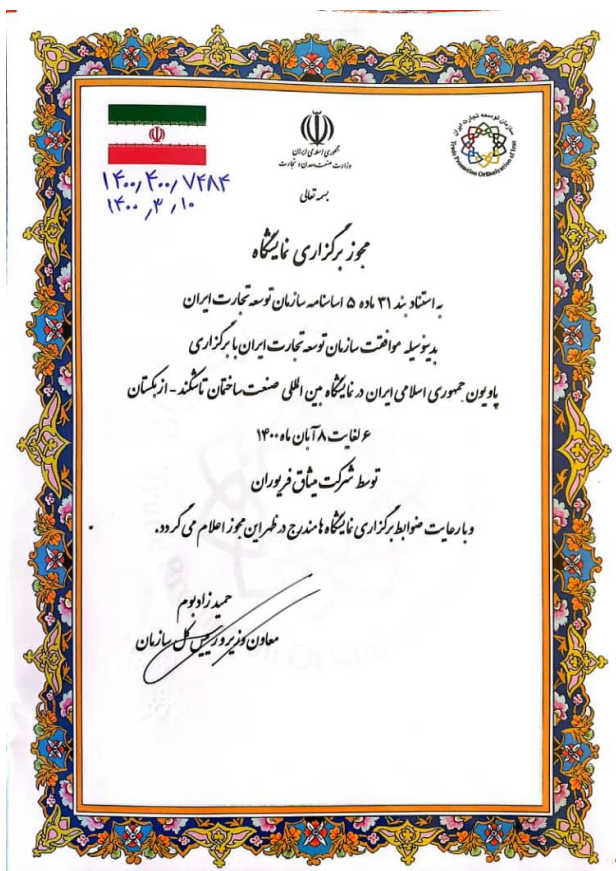 سازمان توسعه تجارت ایران
Trade Promotion Organization of Iran
جمهوری اسلامی ایران
وزارت صنعت، معدن و تجارت
۱۴۰۰٫۴۰۰٫۷۴۸۴
۱۴۰۰٫۳٫۱۰
بسمه تعالی
مجوز برگزاری نمایشگاه
به استناد بند ۳۱ ماده ۵ اساسنامه سازمان توسعه تجارت ایران
بدینوسیله موافقت سازمان توسعه تجارت ایران با برگزاری
پاویون جمهوری اسلامی ایران در نمایشگاه بین المللی صنعت ساختمان تاشکند - ازبکستان
۶ لغایت ۸ آبان ماه ۱۴۰۰
توسط شرکت میثاق فریوران
و با رعایت ضوابط برگزاری نمایشگاه ها مندرج در ظهر این مجوز اعلام می گردد.
حمید زادبوم
معاون وزیر و رییس کل سازمان